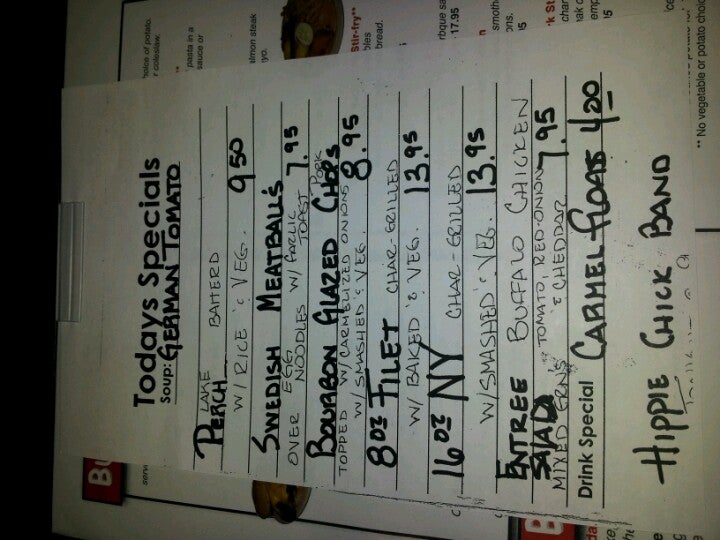 Todays Specials
Soup: GERMAN TOMATO
LAKE
PERCH BATTERD
W/ RICE & VEG. 9.50
SWEDISH MEATBALL'S
OVER EGG NOODLES W/ GARLIC TOAST 7.95
BOURBON GLAZED PORK CHOPS
TOPPED W/ CARMELIZED ONIONS
W/ SMASHED & VEG. 8.95
8oz FILET CHAR-GRILLED
W/ BAKED & VEG. 13.95
16oz NY CHAR-GRILLED
W/ SMASHED & VEG. 13.95
ENTREE BUFFALO CHICKEN
SALAD TOMATO, RED-ONION
MIXED GRNS & CHEDDAR 7.95
Drink Special CARMEL FLOAT 4.20
HIPPIE CHICK BAND
hoice of potato.
r coleslaw.
pasta in a
sauce or
almon steak
yo.
Stir-fry**
bles
bread.
rbque sa
17.95
smoth
ons.
'k St
char
empt
** No vegetable or potato choic